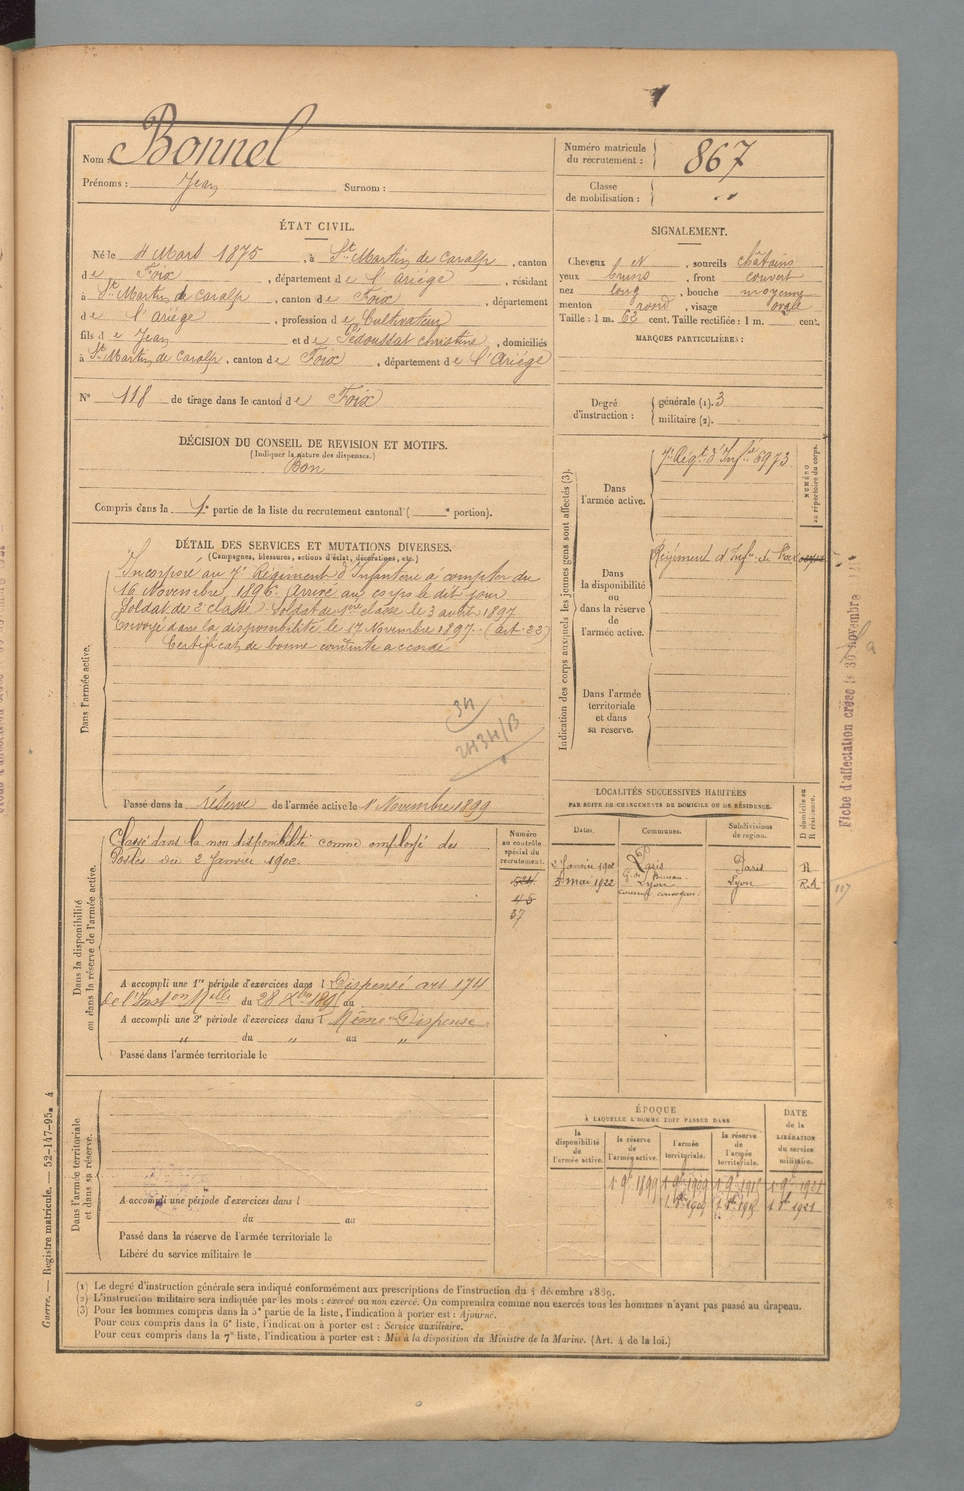 Nom : Bonnel
Prénoms : Jean Surnom :
Numéro matricule du recrutement : 867
Classe de mobilisation : " "
ÉTAT CIVIL.
Né le 4 Mars 1875, à St Martin de Caralp, canton
de Foix, département de l'Ariège, résidant
à St Martin de Caralp, canton de Foix, département
de l'Ariège, profession de Cultivateur
fils de Jean et de Pédoussat Christine, domiciliés
à St Martin de Caralp, canton de Foix, département de l'Ariège
N° 118 de tirage dans le canton de Foix
SIGNALEMENT.
Cheveux et, sourcils châtains
yeux bruns, front couvert
nez long, bouche moyenne
menton rond, visage ovale
Taille : 1 m. 63 cent. Taille rectifiée : 1 m. cent.
MARQUES PARTICULIÈRES :
Degré d'instruction : générale (1). 3
militaire (2).
DÉCISION DU CONSEIL DE REVISION ET MOTIFS.
(Indiquer la nature des dispenses.)
Bon
Compris dans la 1e partie de la liste du recrutement cantonal ( e portion).
DÉTAIL DES SERVICES ET MUTATIONS DIVERSES.
(Campagnes, blessures, actions d'éclat, décorations, etc.)
Dans l'armée active.
Incorporé au 7e Régiment d'Infanterie à compter du
16 Novembre 1896. Arrivé au corps le dit jour
Soldat de 2e classe. Soldat de 1ère classe le 3 avril 1897
Envoyé dans la disponibilité le 17 Novembre 1897. (art. 22)
Certificat de bonne conduite accordé
34
2434/B
Passé dans la réserve de l'armée active le 1r Novembre 1899
Indication des corps auxquels les jeunes gens sont affectés (3).
Dans l'armée active.
7e Régt d'Infie 6973
NUMÉRO au répertoire du corps.
Dans la disponibilité ou dans la réserve de l'armée active.
Régiment d'Infie de Foix
Dans l'armée territoriale et dans sa réserve.
Fiche d'affectation créée le 30 novembre
Dans la disponibilité ou dans la réserve de l'armée active.
Classé dans la non disponibilité comme employé des
Postes du 2 Janvier 1902.
Numéro au contrôle spécial du recrutement.
45
37
A accompli une 1re période d'exercices dans l Dispensé art 174
de l'Inston Melle du 28 Xbre 1895 au
A accompli une 2e période d'exercices dans l Même Dispense
" du " au "
Passé dans l'armée territoriale le
LOCALITÉS SUCCESSIVES HABITÉES
PAR SUITE DE CHANGEMENTS DE DOMICILE OU DE RÉSIDENCE.
Dates. Communes. Subdivisions de région. D domicile ou R résidence.
2 Janvier 1902 Paris Paris R
5 mai 1922 Lyon Lyon R.A
117
Dans l'armée territoriale et dans sa réserve.
A accompli une période d'exercices dans l
du au
Passé dans la réserve de l'armée territoriale le
Libéré du service militaire le
ÉPOQUE
À LAQUELLE L'HOMME DOIT PASSER DANS
DATE de la LIBÉRATION du service militaire.
la disponibilité de l'armée active. la réserve de l'armée active. l'armée territoriale. la réserve de l'armée territoriale.
1 9e 1899 1 9e 1909 1 9e 1915 1 9e 1921
1 8e 1909 1 8e 1915 1 8e 1921
(1) Le degré d'instruction générale sera indiqué conformément aux prescriptions de l'instruction du 4 décembre 1889.
(2) L'instruction militaire sera indiquée par les mots : exercé ou non exercé. On comprendra comme non exercés tous les hommes n'ayant pas passé au drapeau.
(3) Pour les hommes compris dans la 5e partie de la liste, l'indication à porter est : Ajourné.
Pour ceux compris dans la 6e liste, l'indication à porter est : Service auxiliaire.
Pour ceux compris dans la 7e liste, l'indication à porter est : Mis à la disposition du Ministre de la Marine. (Art. 4 de la loi.)
Guerre. — Registre matricule. — 52-147-95. 4